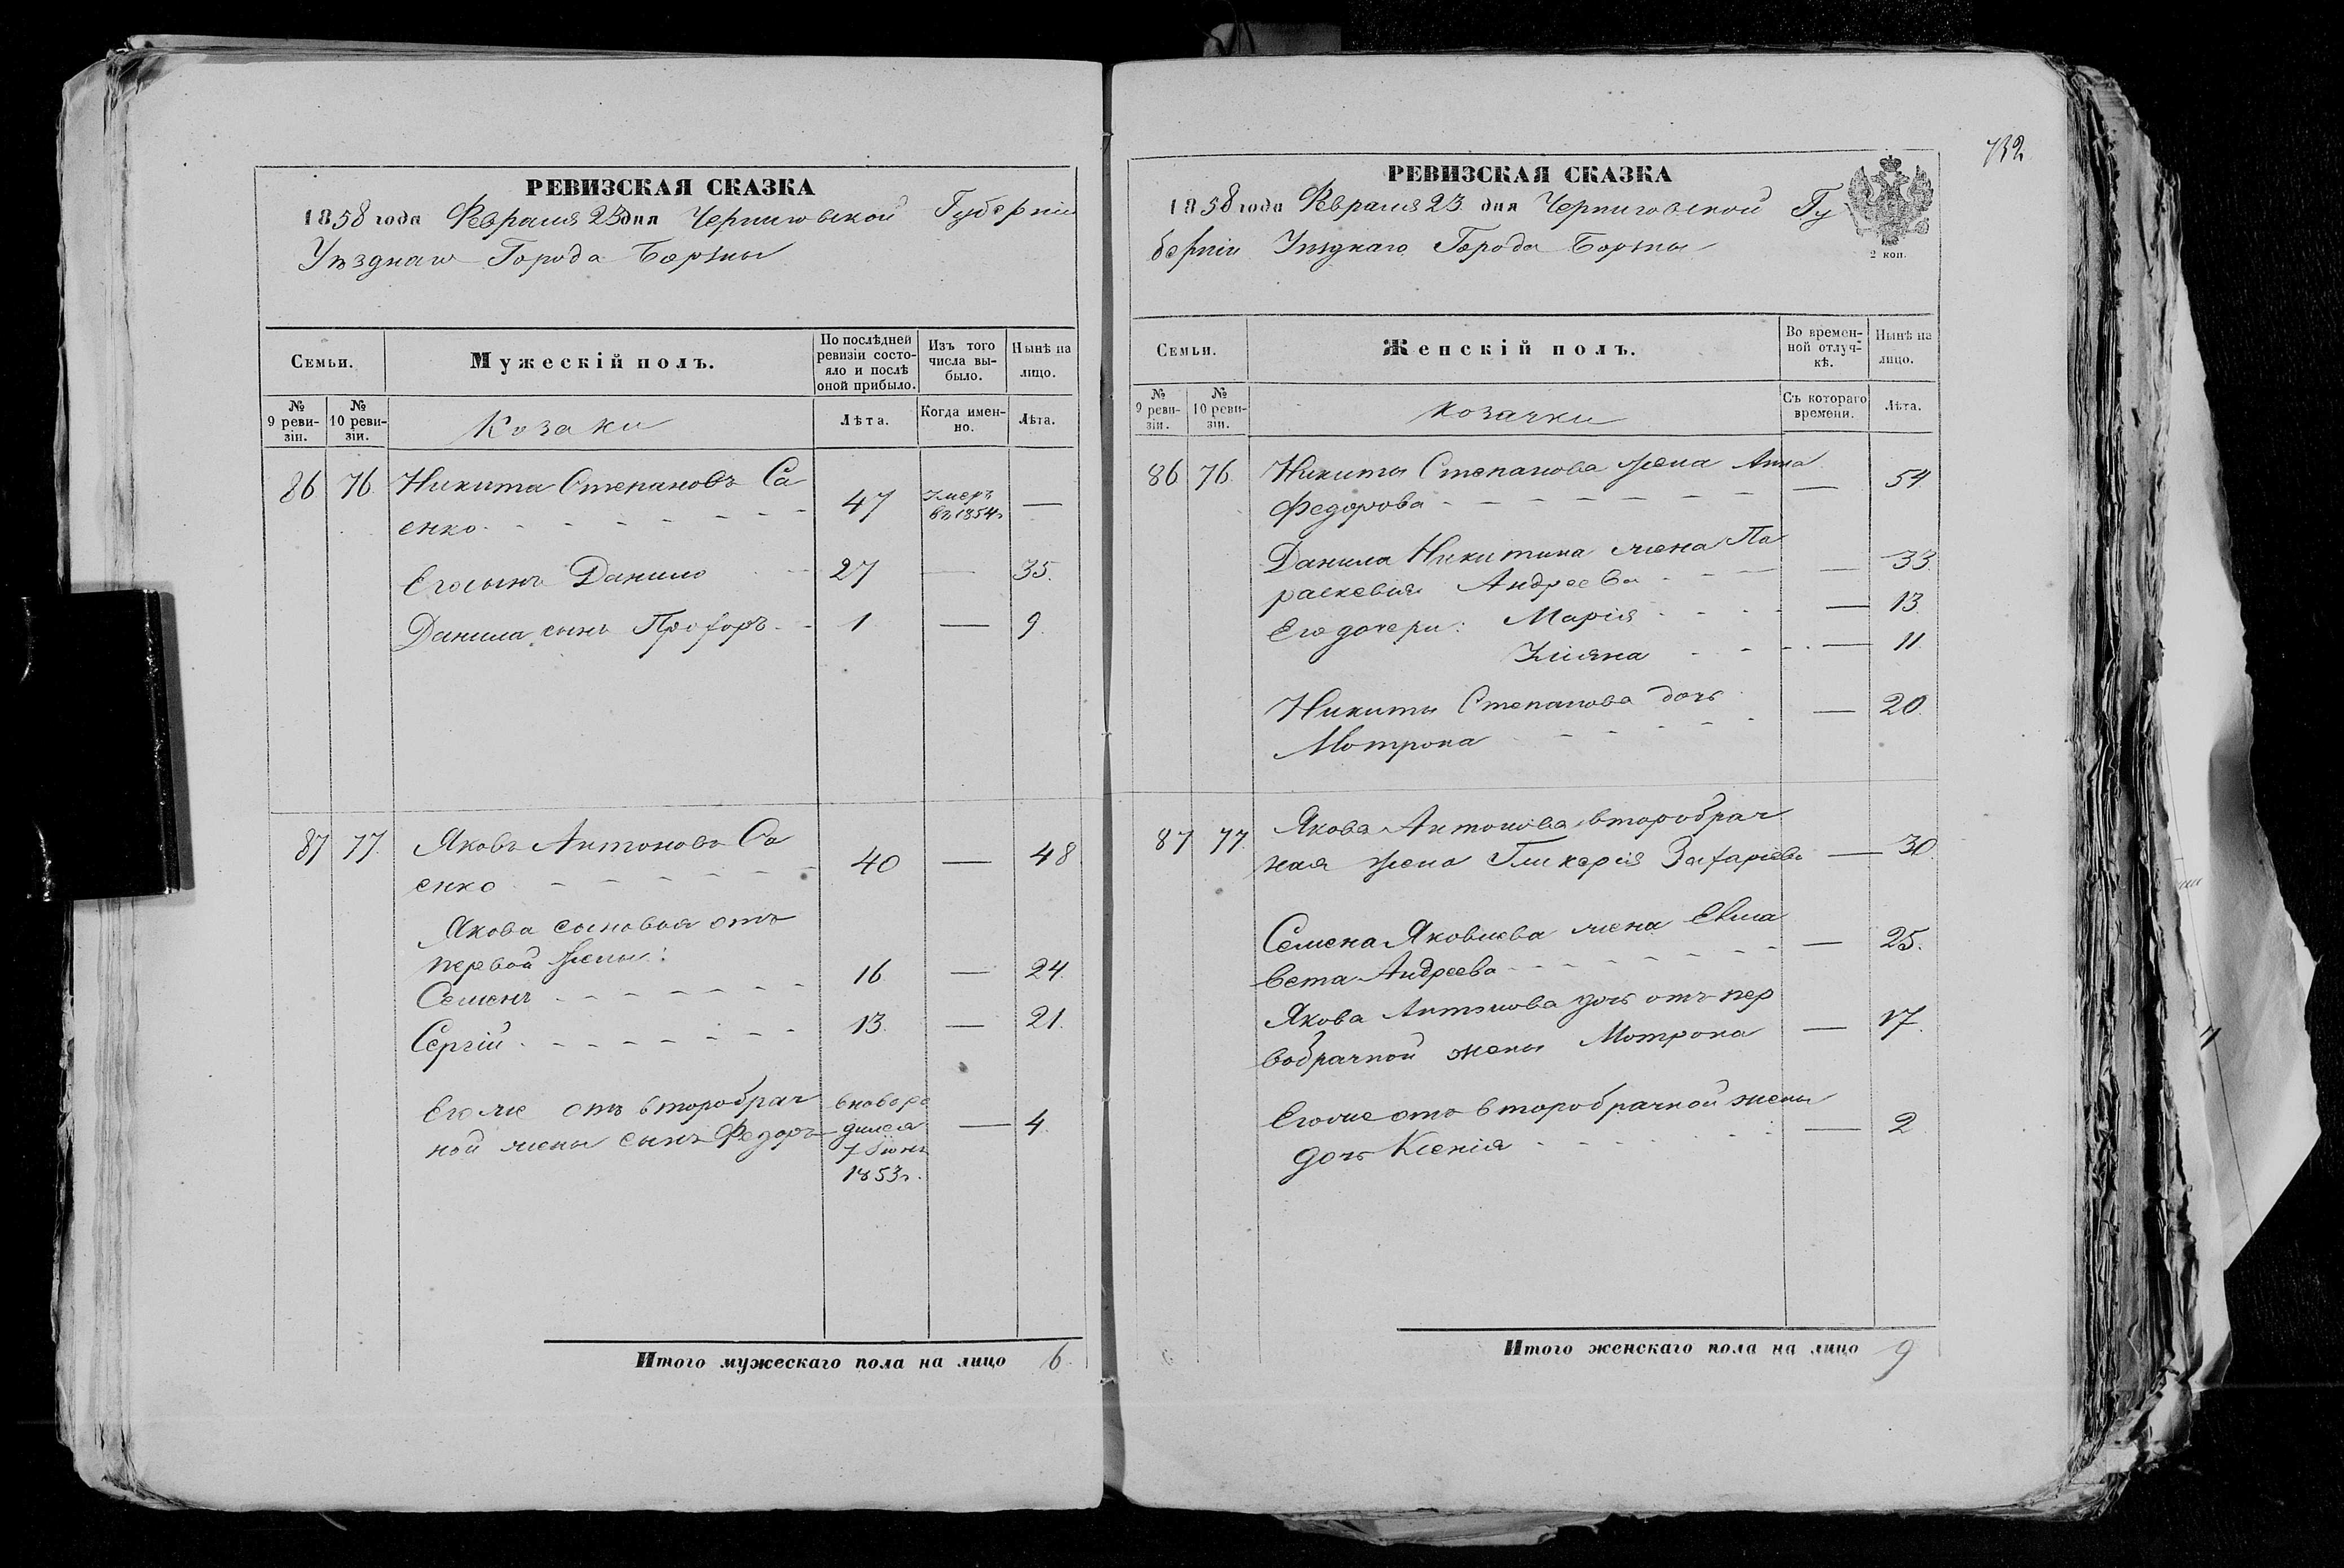 РЕВИЗСКАЯ СКАЗКА
1858 года Февраля 23 дня Черниговской Губерніи
Уѣзднаго Города Борзны
Семьи.
Мужескій полъ.
По послѣдней ревизіи состояло и послѣ оной прибыло.
Изъ того числа выбыло.
Нынѣ на лицо.
№ 9 ревизіи.
№ 10 ревизіи.
Козаки
Лѣта.
Когда именно.
Лѣта.
86 76 Никита Степановъ Са
енко 47 умеръ въ 1854г —
Его сынъ Данило 27 — 35.
Данила сынъ Прохоръ 1 — 9.
87 77. Яковъ Антоновъ Са
енко 40 — 48
Якова сыновья отъ
первой жены:
Семенъ 16 — 24.
Сергій 13. — 21.
Его же отъ второбрач
ной жены сынъ Федоръ
вноворо
дился
7 Іюня
1853г.
— 4.
Итого мужескаго пола на лицо 6.
732
РЕВИЗСКАЯ СКАЗКА
1858 года Февраля 23 дня Черниговской Гу
берніи Уѣзднаго Города Борзны
2 коп.
Семьи.
Женскій полъ.
Во временной отлучкѣ.
Нынѣ на лицо.
№ 9 ревизіи.
№ 10 ревизіи.
козачки
Съ котораго времени.
Лѣта.
86 76. Никиты Степанова жена Анна
Федорова — 54
Данила Никитина жена Па
раскевия Андреева — 33.
Его дочери: Марія — 13.
Уліяна — 11.
Никиты Степанова дочь
Мотрона — 20.
87 77. Якова Антонова второбрач
ная жена Гликерія Захаріева — 30.
Семена Яковлева жена Елиса
вета Андреева — 25.
Якова Антонова дочь отъ пер
вобрачной жены Мотрона — 17.
Его же отъ второбрачной жены
дочь Ксенія — 2
Итого женскаго пола на лицо 9